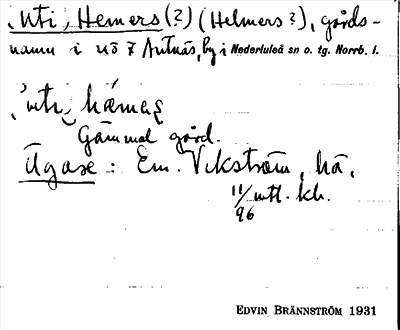 Uti, Hemers (?) (Helmers?), gårds-
namn i nö 7 Antnäs, by i Nederluleå sn o. tg. Norrb. l.
Gammal gård.
Ägare: Em. Vikström, hä,
11/96 mtl. kh.
EDVIN BRÄNNSTRÖM 1931